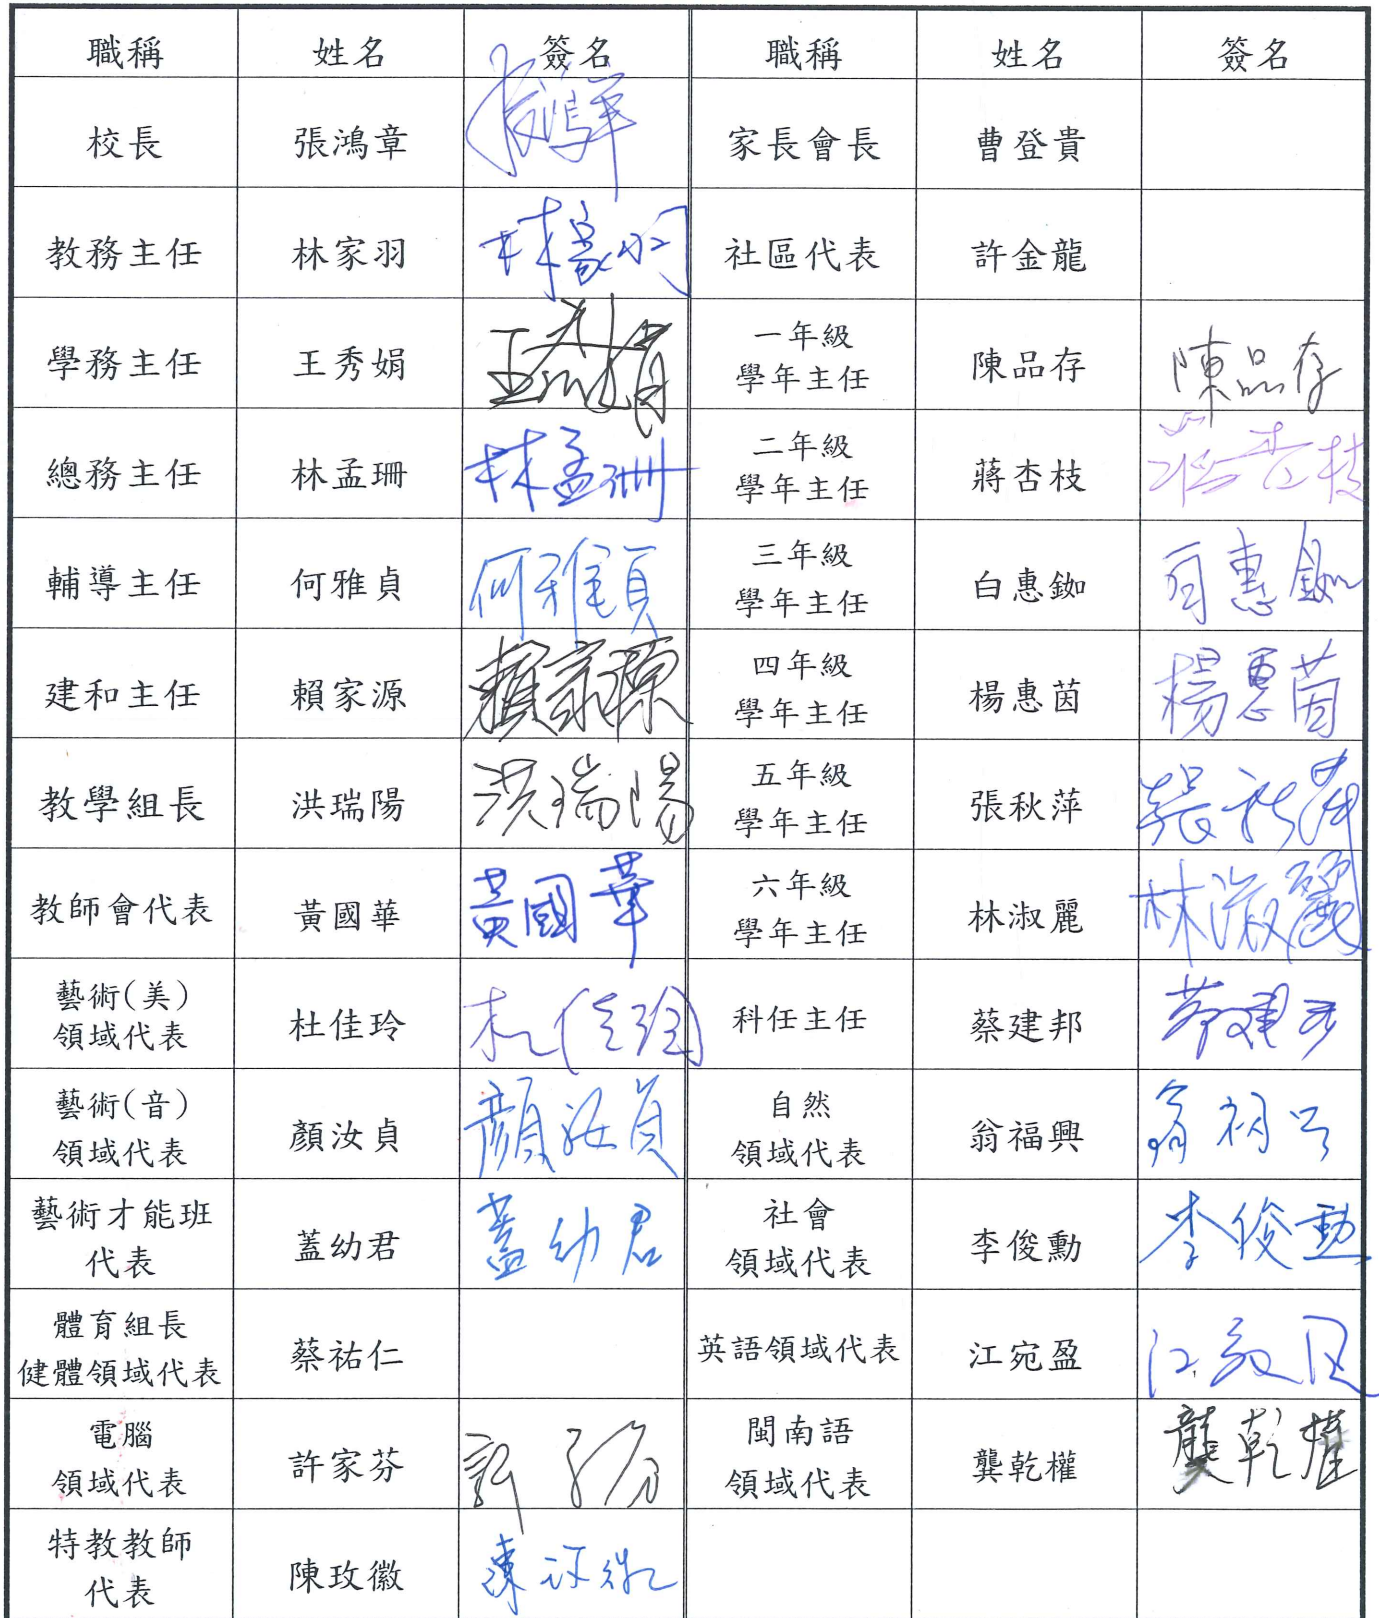 職稱 姓名 簽名 職稱 姓名 簽名
校長 張鴻章 張鴻章 家長會長 曹登貴
教務主任 林家羽 林家羽 社區代表 許金龍
學務主任 王秀娟 王秀娟 一年級
學年主任 陳品存 陳品存
總務主任 林孟珊 林孟珊 二年級
學年主任 蔣杏枝 蔣杏枝
輔導主任 何雅貞 何雅貞 三年級
學年主任 白惠銣 白惠銣
建和主任 賴家源 賴家源 四年級
學年主任 楊惠茵 楊惠茵
教學組長 洪瑞陽 洪瑞陽 五年級
學年主任 張秋萍 張秋萍
教師會代表 黃國華 黃國華 六年級
學年主任 林淑麗 林淑麗
藝術(美)
領域代表 杜佳玲 杜佳玲 科任主任 蔡建邦 蔡建邦
藝術(音)
領域代表 顏汝貞 顏汝貞 自然
領域代表 翁福興 翁福興
藝術才能班
代表 蓋幼君 蓋幼君 社會
領域代表 李俊勳 李俊勳
體育組長
健體領域代表 蔡祐仁 英語領域代表 江宛盈 江宛盈
電腦
領域代表 許家芬 許家芬 閩南語
領域代表 龔乾權 龔乾權
特教教師
代表 陳玫徽 陳玫徽